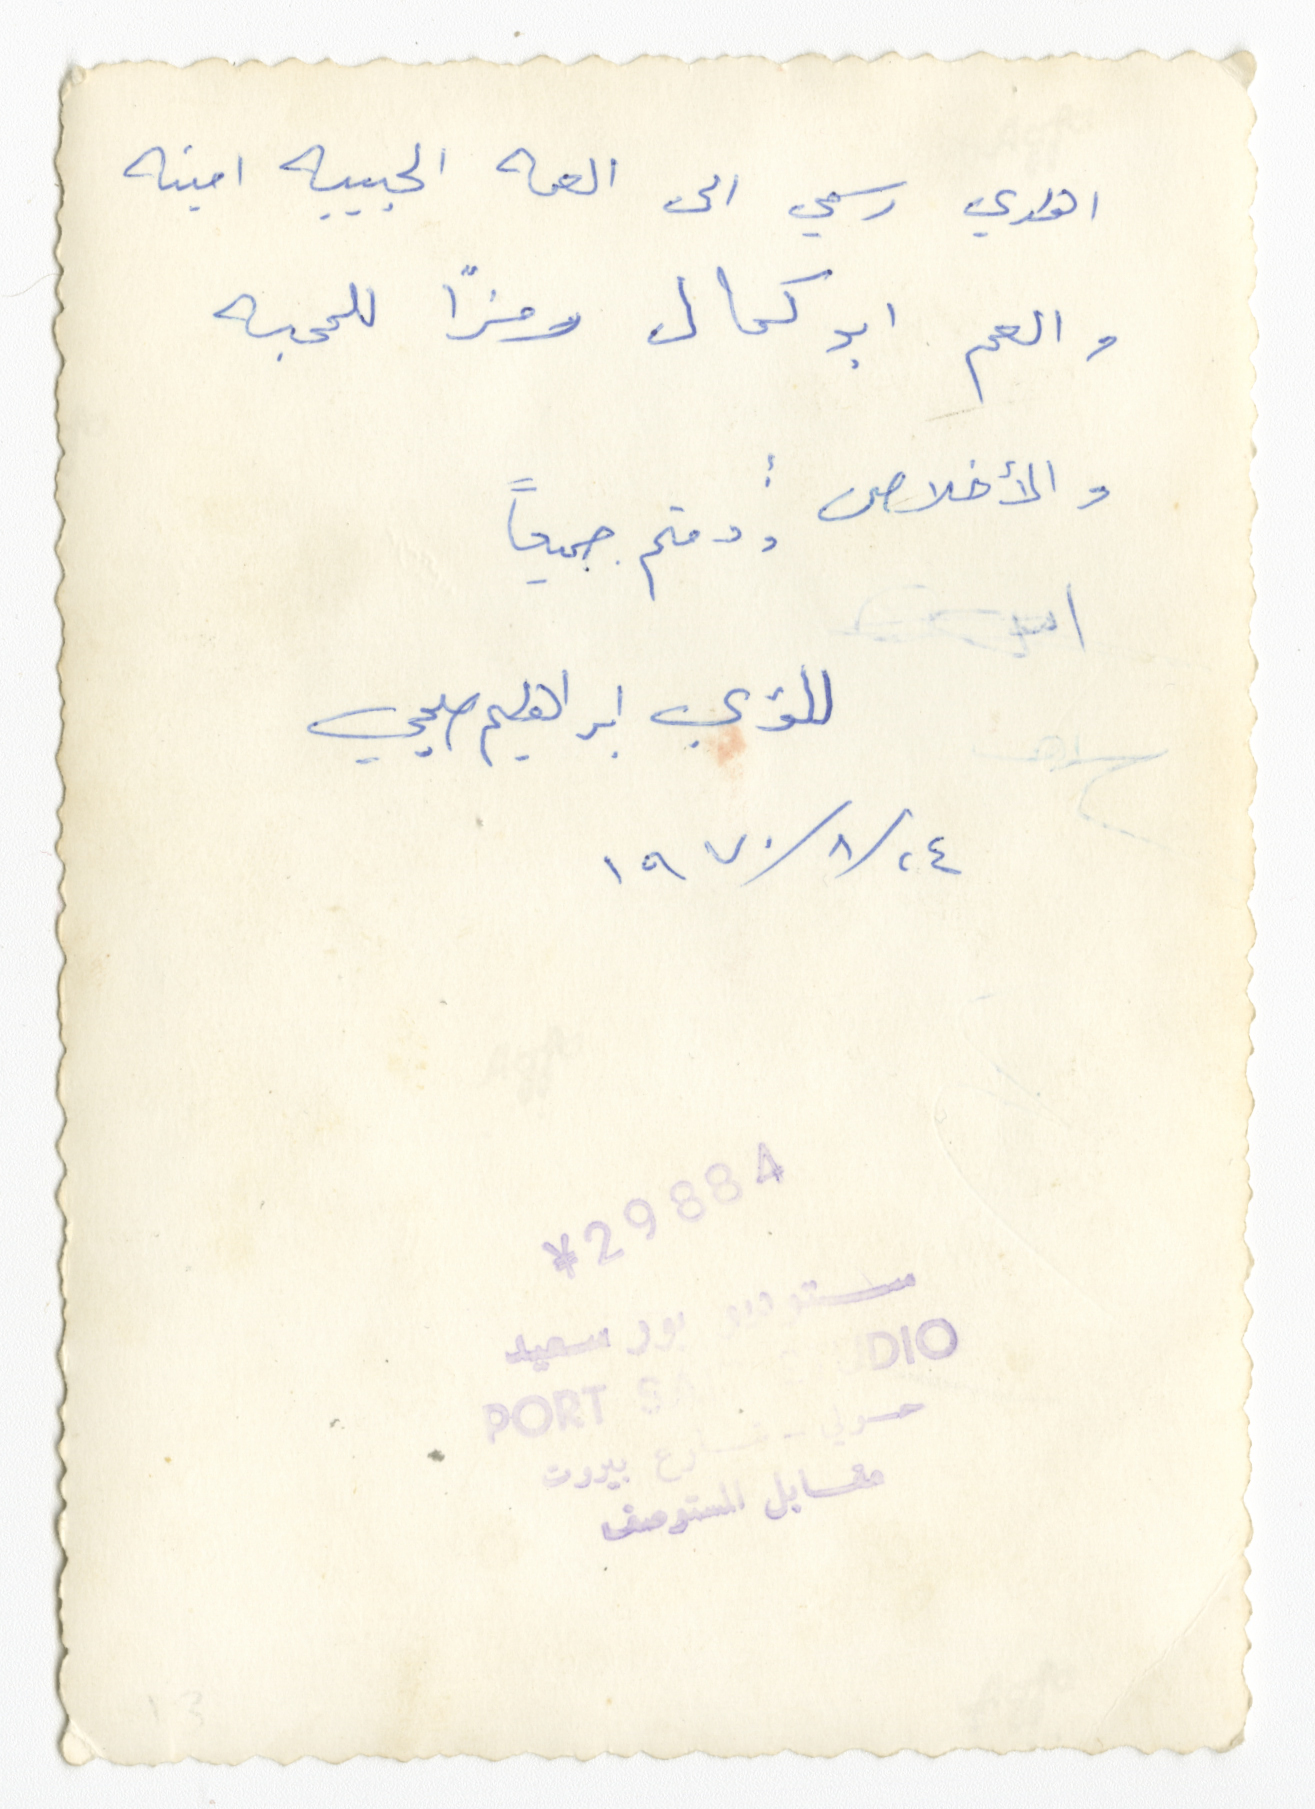 اهدي رسمي الى العمه الحبيبه امينه
والعم ابو كمال ورمزًا للمحبه
والأخلاص ودمتم جميعاً
ابراهيم صبحي
٢٤/٨/١٩٧٠
*29884
ستوديو بور سعيد
PORT SAID STUDIO
حولي - شارع بيروت
مقابل المستوصف